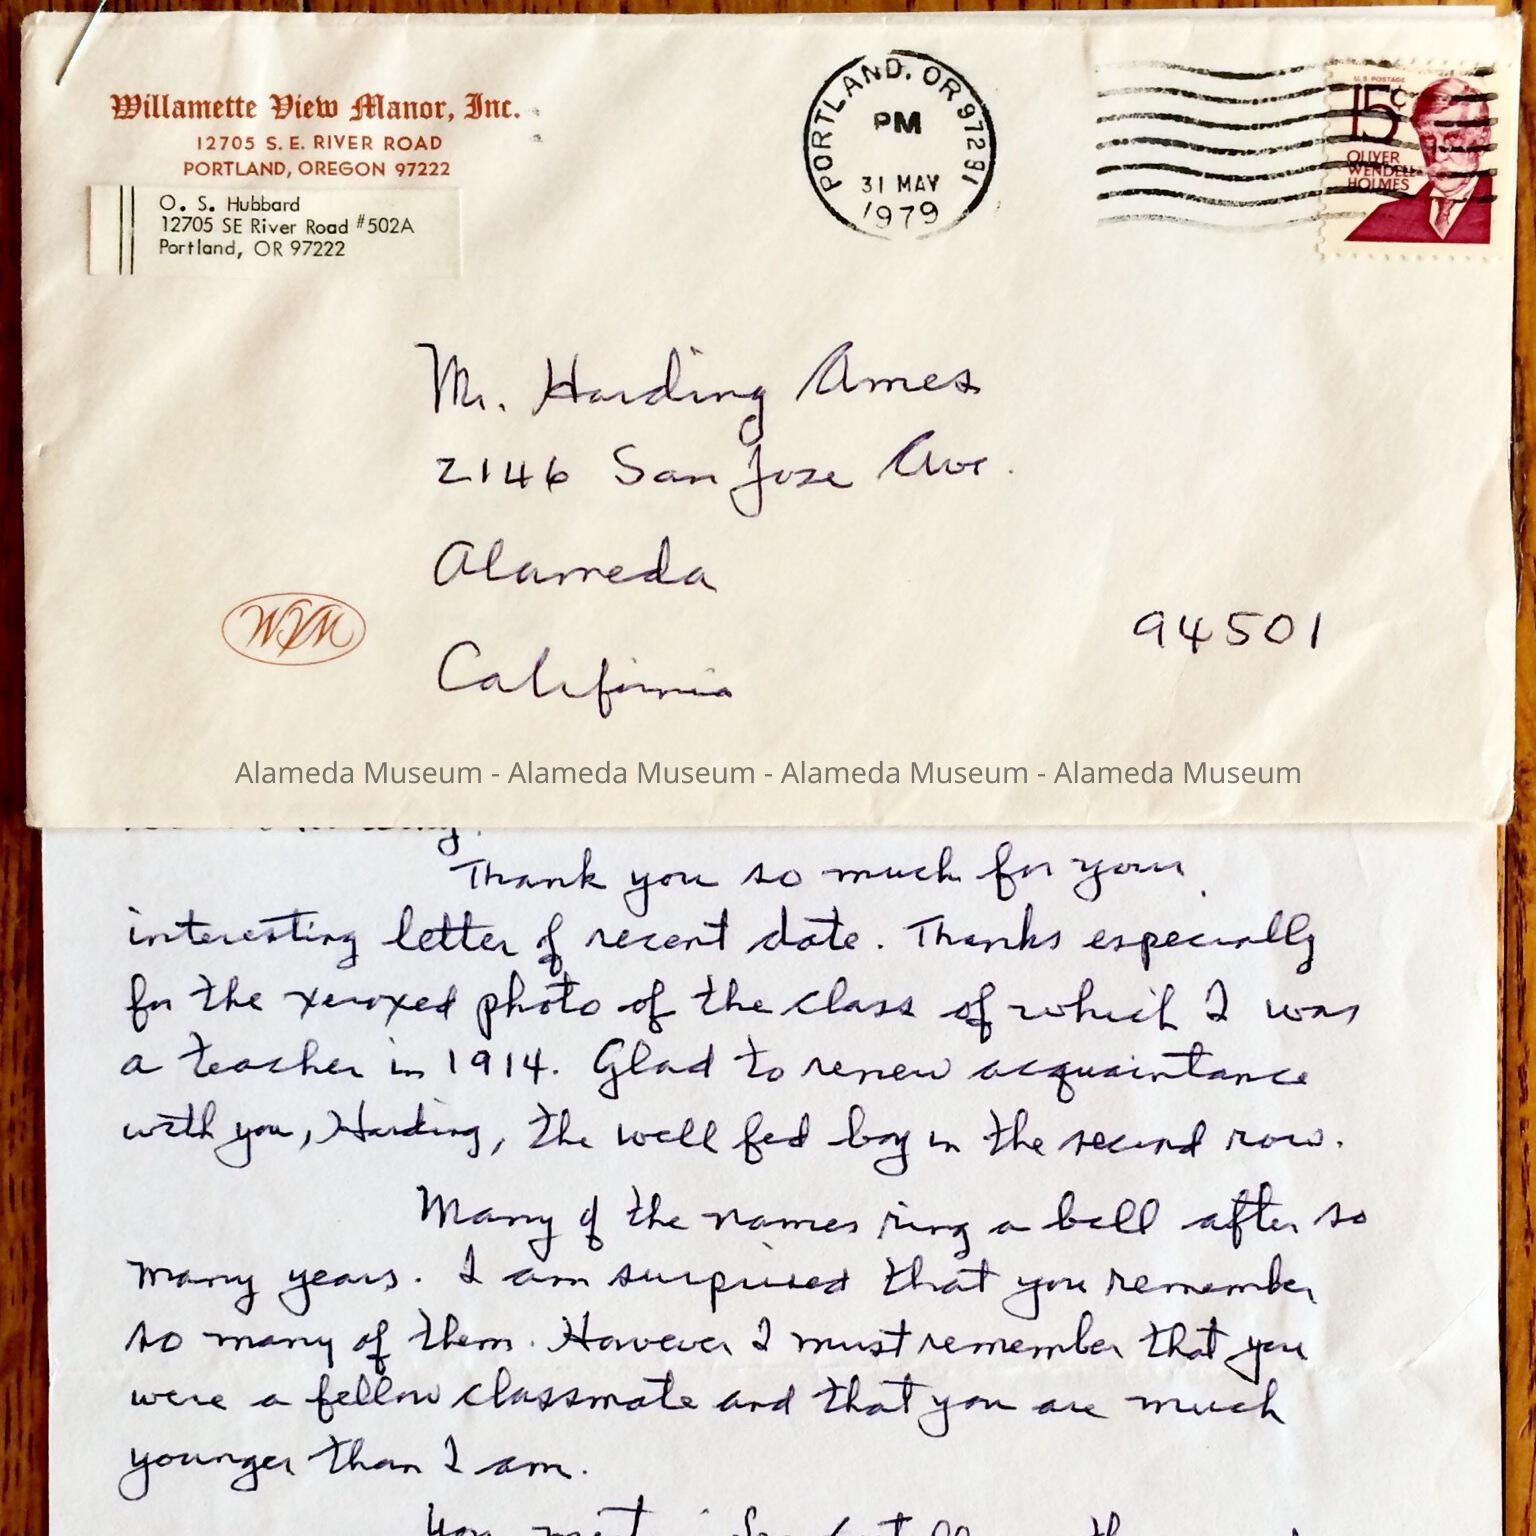 Willamette View Manor, Inc.
12705 S. E. RIVER ROAD
PORTLAND, OREGON 97222
O. S. Hubbard
12705 SE River Road #502A
Portland, OR 97222
PORTLAND, OR 97291
PM
31 MAY
1979
U.S. POSTAGE
15¢
OLIVER
WENDELL
HOLMES
Mr. Harding Ames
2146 San Jose Ave.
Alameda
94501
California
WVM
Alameda Museum - Alameda Museum - Alameda Museum - Alameda Museum
Thank you so much for your
interesting letter of recent date. Thanks especially
for the xeroxed photo of the class of which I was
a teacher in 1914. Glad to renew acquaintance
with you, Harding, the well fed boy in the second row.
Many of the names ring a bell after so
many years. I am surprised that you remember
so many of them. However I must remember that you
were a fellow classmate and that you are much
younger than I am.